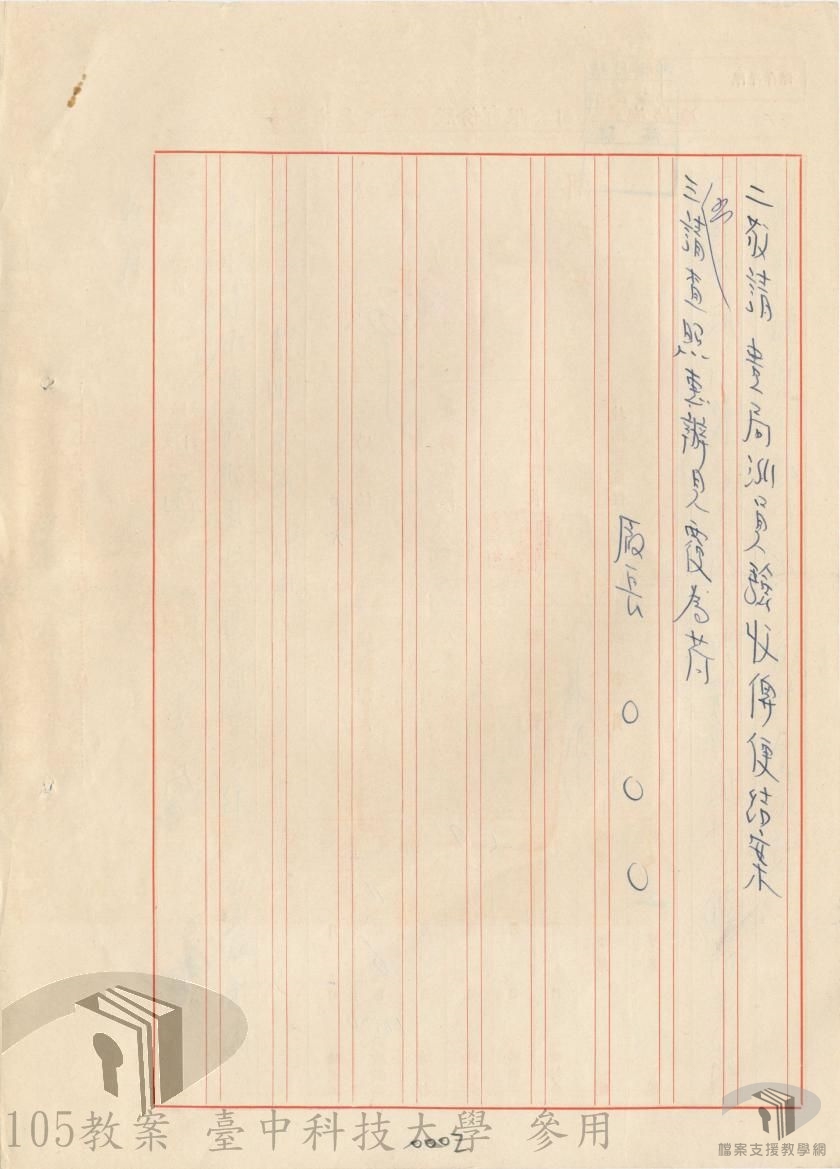 二敬請 貴局派員驗收俾便結案
三請查照惠辦見覆為荷
廠長 ○○○
105教案 臺中科技大學 參用
0002
檔案支援教學網